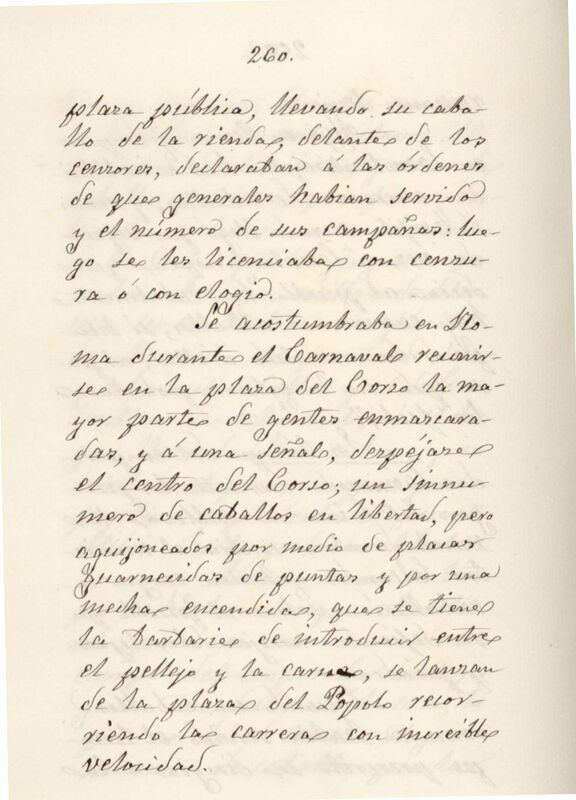 260.
plaza pública, llevando su caba-
llo de la rienda, delante de los
cenzores, declaraban á las órdenes
de que generales habian servido
y el número de sus campañas: lue-
go se les licenciaba con cenzu-
ra ó con elogio.
Se acostumbraba en Ro-
ma durante el Carnaval reunir-
se en la plaza del Corso la ma-
yor parte de gentes enmascara-
das, y á una señal, despéjase
el centro del Corso; un sinnu-
mero de caballos en libertad, pero
aguijoneados por medio de placas
guarnecidas de puntas y por una
mecha encendida, que se tiene
la barbarie de introducir entre
el pellejo y la carne, se lanzan
de la plaza del Popolo recor-
riendo la carrera con increible
velocidad.